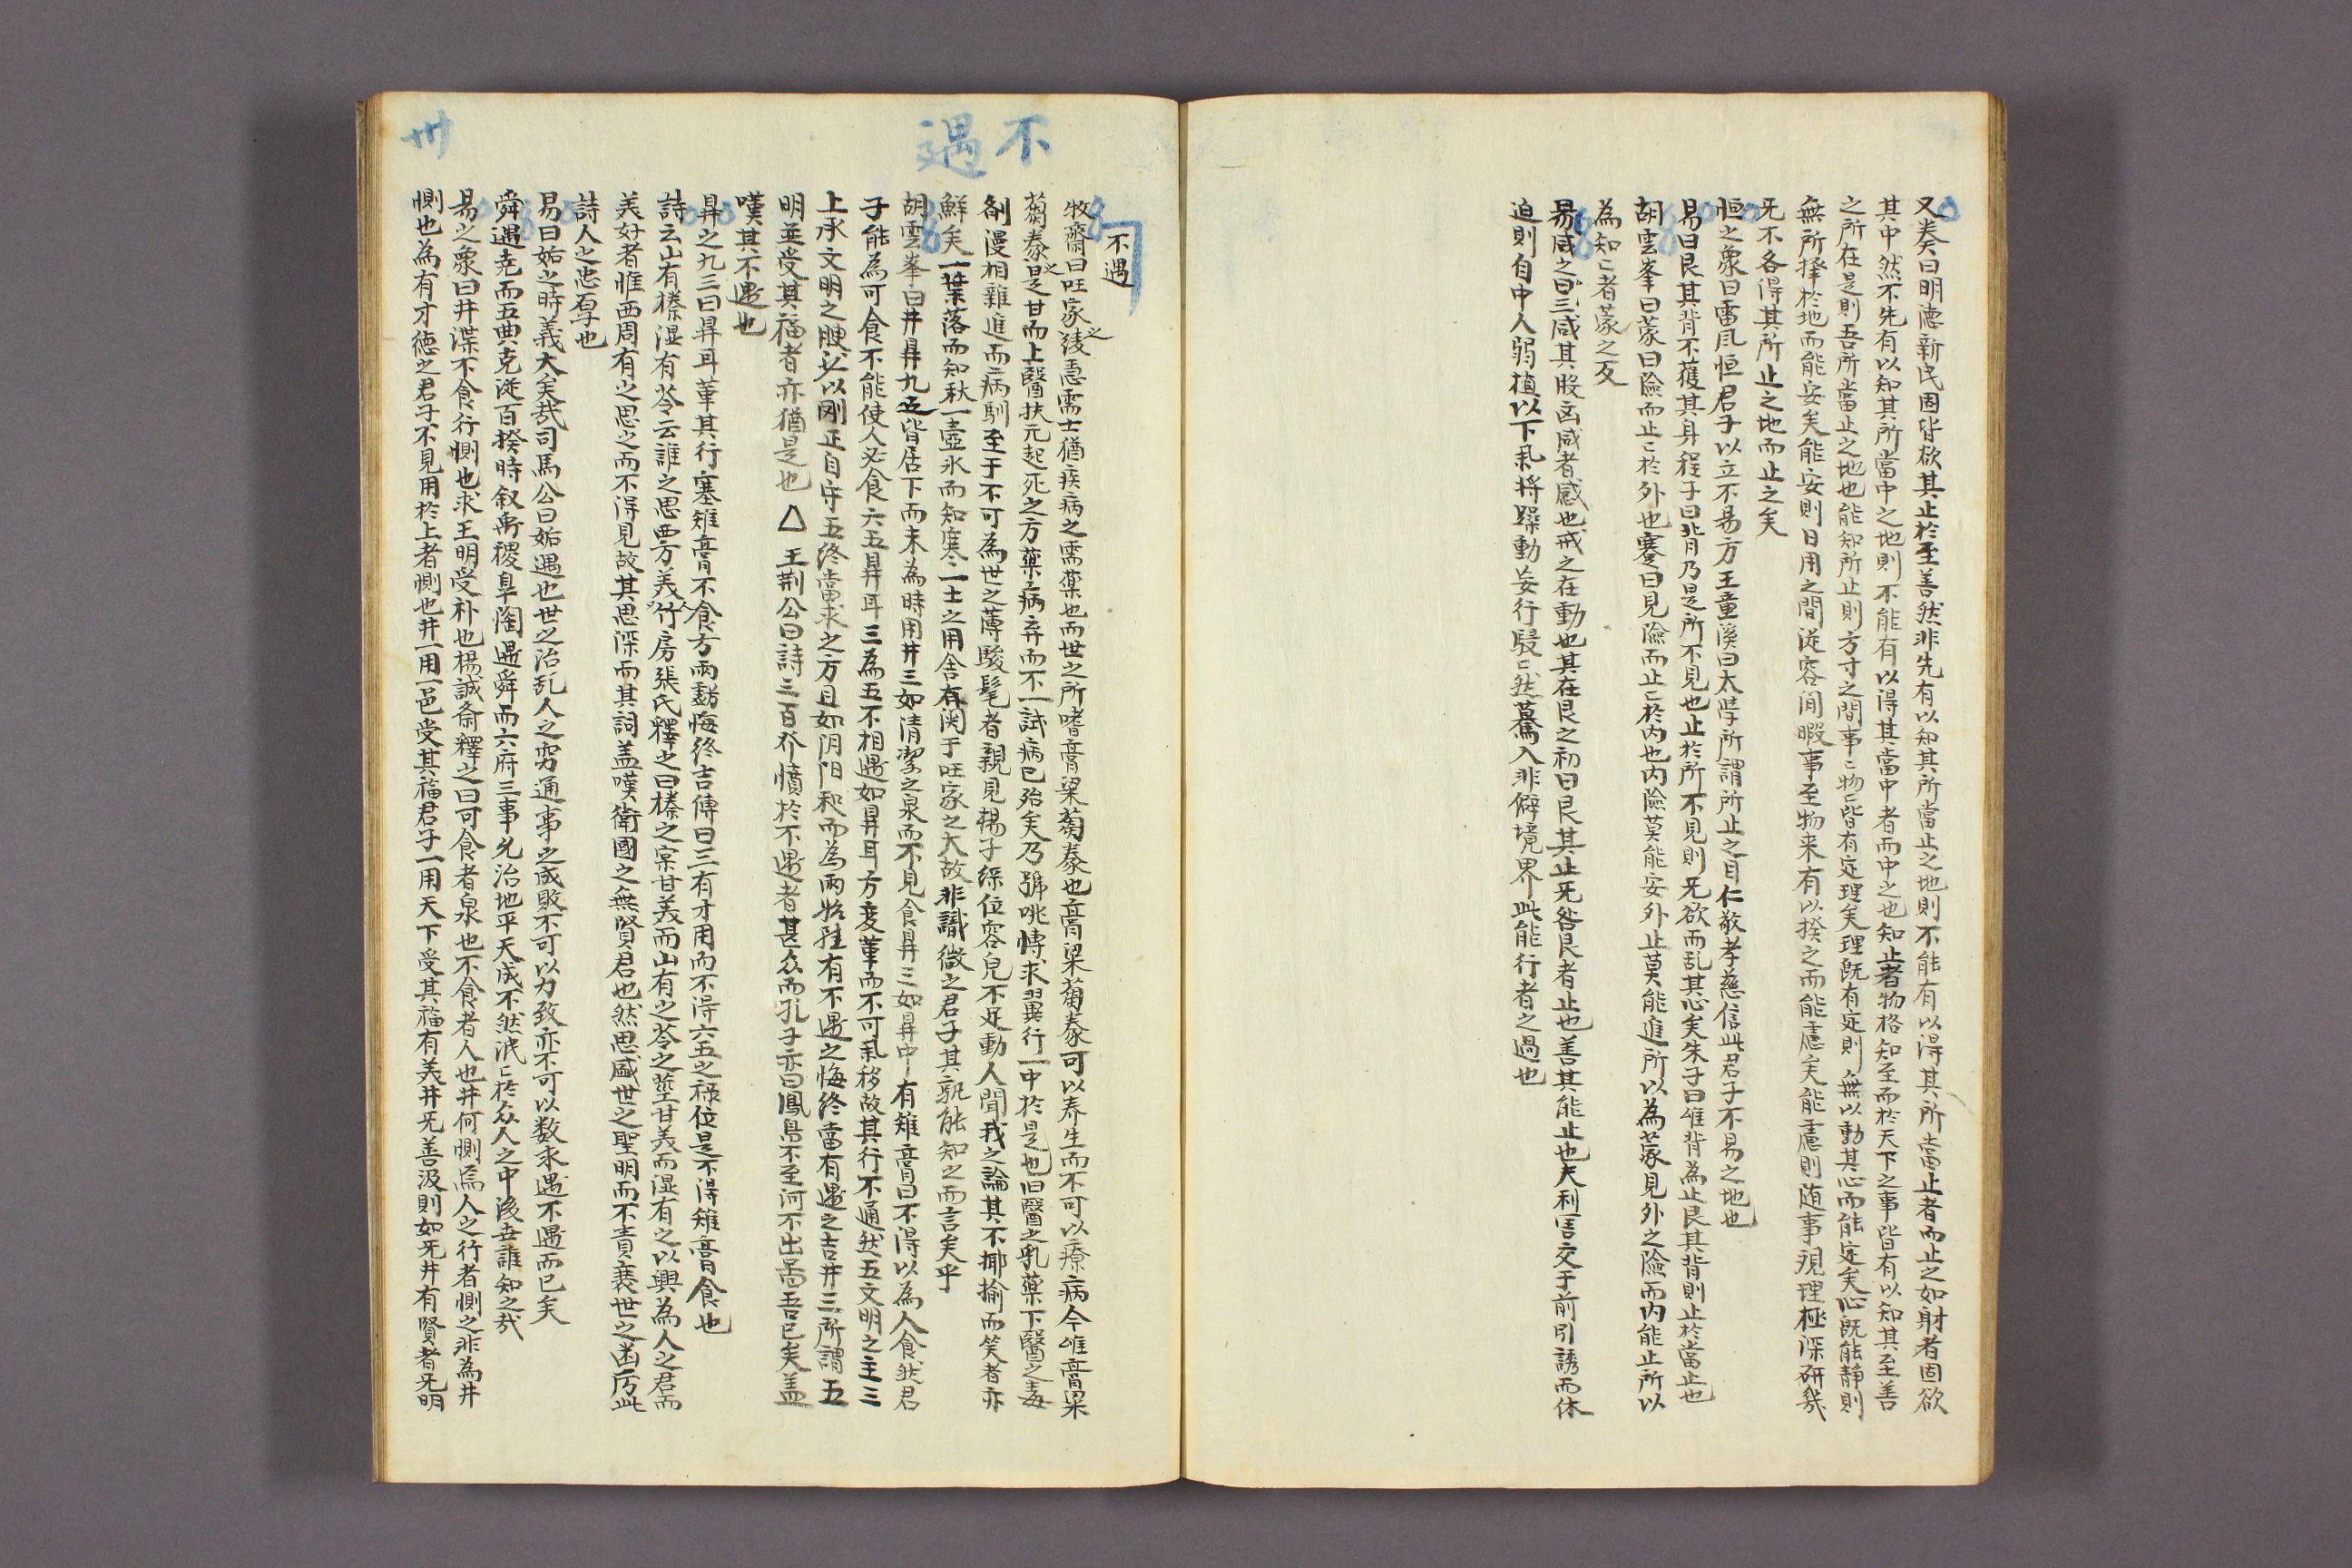 又奏曰明德新民固皆欲其止於至善然非先有以知其所當止之地則不能有以得其所當止者而止之如射者固欲
其中然不先有以知其所當中之地則不能有以得其當中者而中之也知止者物格知至而於天下之事皆有以知其至善
之所在是則吾所當止之地也能知所止則方寸之間事〻物〻皆有定理矣理既有定則無以動其心而能定矣心既能靜則
無所擇於地而能安矣能安則日用之間從容閒暇事至物来有以揆之而能慮矣能慮則随事覌理極深研幾
旡不各得其所止之地而止之矣
恒之象曰雷風恒君子以立不易方王童溪曰大學所謂所止之目仁敬孝慈信此君子不易之地也
易曰艮其背不獲其身程子曰背乃是所不見也止於所不見則旡欲而乱其心矣朱子曰唯背為止艮其背則止於當止也
胡雲峯曰蒙曰險而止〻於外也蹇曰見險而止〻於内也内險莫能安外止莫能進所以為蒙見外之險而内能止所以
為知〻者蒙之反
易咸之曰三咸其股凶咸者感也戒之在動也其在艮之初曰艮其止旡咎艮者止也善其能止也夫利害交于前引誘而休
迫則自中人弱植以下氣将躁動妄行駸〻然驀入非僻境界此能行者之過也
不遇
不遇
牧齋曰旺家之綾急需士猶疾病之需藥也而世之所嗜膏粱蒭豢也膏粱蒭豢可以养生而不可以療病今唯膏粱
蒭豢之是甘而上醫扶元起死之方藥之病弃而不一試病已殆矣乃號咷慱求冀行一中於是也旧醫之乳藥下醫之毒
劑漫相雜進而病馴至于不可為世之薄駿髦者親見楊子綵位容皃不足動人聞我之論其不揶揄而笑者亦
鮮矣一葉落而知秋一壺氷而知寒一士之用舍有関于旺家之大故非識微之君子其孰能知之而言矣乎
胡雲峯曰井鼎九五皆居下而未為時用井三如清潔之泉而不見食鼎三如鼎中有雉膏曰不得以為人食然君
子能為可食不能使人必食六五鼎耳三為五不相遇如鼎耳方変革而不可氣移故其行不通然五文明之主三
上承文明之腴必以剛正自守五終當求之方且如阴阳和而為両始雖有不遇之悔終當有遇之吉井三所謂五
明並受其福者亦猶是也 △ 王荆公曰詩三百発憤於不遇者甚众而孔子亦曰鳳鳥不至河不出啚吾已矣盖
嘆其不遇也
鼎之九三曰鼎耳革其行塞雉膏不食方雨虧悔終吉傳曰三有才用而不得六五之禄位是不得雉膏食也
詩云山有榛湿有苓云誰之思西方美人竹房張氏釋之曰榛之宲甘美而山有之苓之莖甘美而湿有之以興為人之君而
美好者惟西周有之思之而不得見故其思深而其詞盖嘆衛國之無賢君也然思盛世之聖明而不責衰世之凶厉此
詩人之忠厚也
易曰姤之時義大矣哉司馬公曰姤遇也世之治乱人之穷通事之成敗不可以力致亦不可以数求遇不遇而已矣
舜遇尭而五典克従百揆時叙禹稷皐陶遇舜而六府三事允治地平天成不然泯〻於众人之中後丗誰知之哉
易之象曰井渫不食行惻也求王明受朴也楊誠斎釋之曰可食者泉也不食者人也井何惻焉人之行者惻之非為井
惻也為有才徳之君子不見用於上者惻也井一用一邑受其福君子一用天下受其福有美井旡善汲則如旡井有賢者旡明
卅